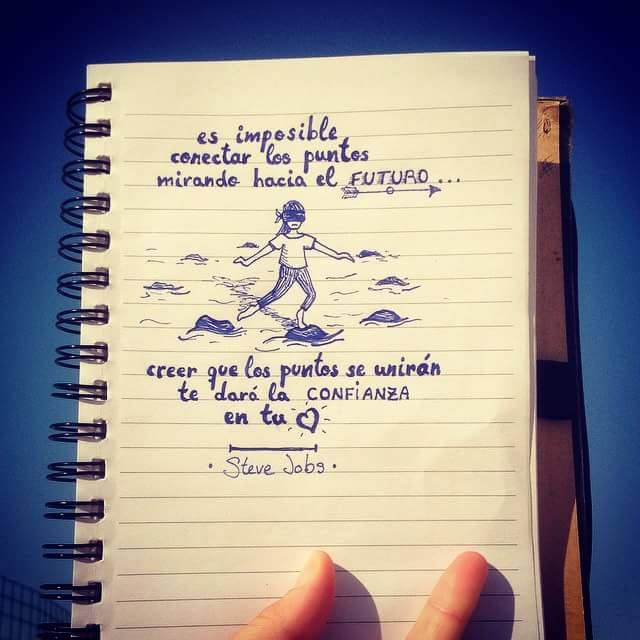 es imposible
conectar los puntos
mirando hacia el FUTURO...
creer que los puntos se unirán
te dará la CONFiANZA
en tu
• Steve Jobs •